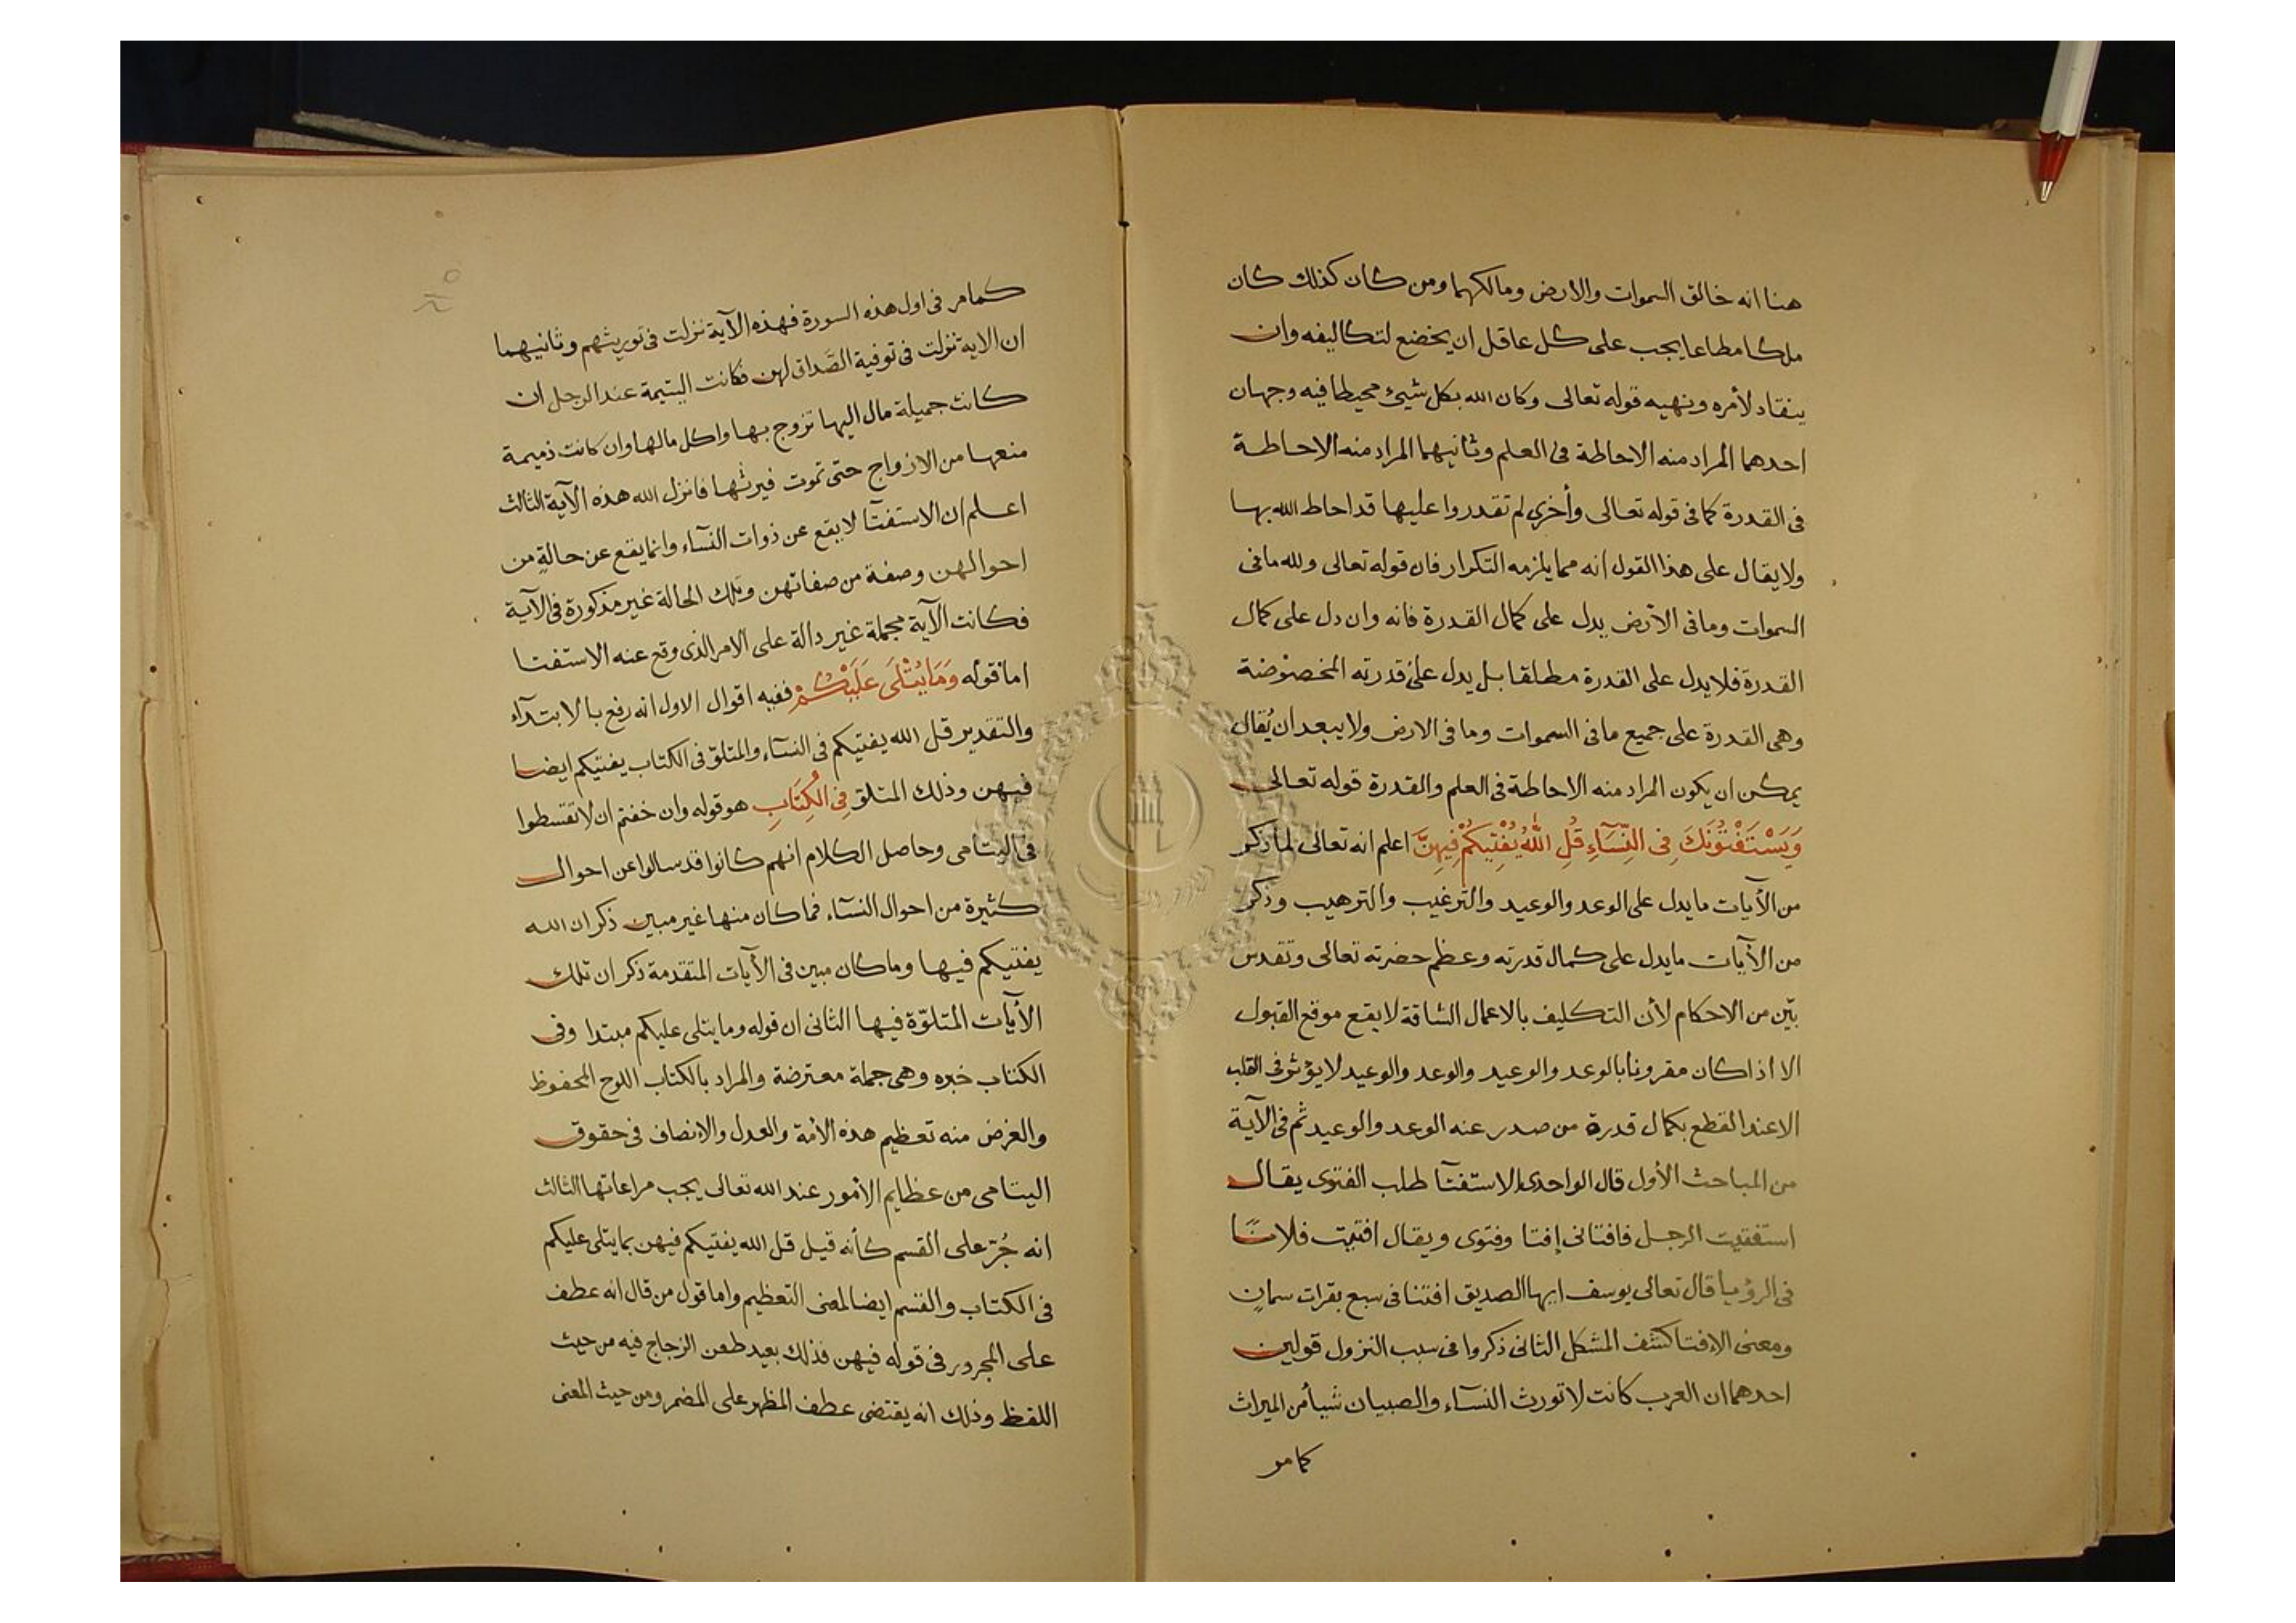 هنا انه خالق السموات والارض ومالكهما ومن كان كذلك كان
ملكا مطاعا يجب على كل عاقل ان يخضع لتكاليفه وان
ينقاد لأمره ونهيه قوله تعالى وكان الله بكل شيئ محيطا فيه وجهان
احدهما المراد منه الاحاطة فى العلم وثانيهما المراد منه الاحاطة
فى القدرة كما فى قوله تعالى وأخرى لم تقدروا عليها قد احاط الله بها
ولا يقال على هذا القول انه مما يلزمه التكرار فان قوله تعالى ولله ما فى
السموات وما فى الأرض يدل على كمال القدرة فانه وان دل على كمال
القدرة فلا يدل على القدرة مطلقا بل يدل على قدرته المخصوصة
وهى القدرة على جميع ما فى السموات وما فى الارض ولا يبعد ان يُقال
يمكن ان يكون المراد منه الاحاطة فى العلم والقدرة قوله تعالى
وَيَسْتَفْتُوْنَكَ فِى النِّسَآءِ قُلِ اللّٰهُ يُفْتِيْكُمْ فِيهِنَّ اعلم انه تعالى لما ذكر
من الأيات ما يدل على الوعد والوعيد والترغيب والترهيب وذكر
من الأيات ما يدل على كمال قدرته وعظم حضرته تعالى وتقدس
بيّن من الاحكام لأن التكليف بالاعمال الشاقة لا يقع موقع القبول
الا اذا كان مقرونا بالوعد والوعيد والوعد والوعيد لا يؤثر فى القلب
الا عند القطع بكمال قدرة من صدر عنه الوعد والوعيد ثم فى الآية
من المباحث الأول قال الواحدى الاستفتآ طلب الفتوى يقال
استفتيت الرجل فافتانى إفتا وفتوى ويقال افتيت فلانًا
فى الرؤيا قال تعالى يوسف ايها الصديق افتنا فى سبع بقرات سمانٍ
ومعنى الافتا كشف المشكل الثانى ذكروا فى سبب النزول قولين
احدهما ان العرب كانت لا تورث النسآء والصبيان شيأ من الميراث
كما مر
كما مر فى اول هذه السورة فهذه الآية نزلت فى توريثهم وثانيهما
ان الاية نزلت فى توفية الصَّداق لهن فكانت اليتيمة عند الرجل ان
كانت جميلة مال اليها تزوج بها واكل مالها وان كانت ذميمة
منعها من الازواج حتى تموت فيرثها فانزل الله هذه الآية الثالث
اعلم ان الاستفتآ لا يقع عن ذوات النسآء وانما يقع عن حالةٍ من
احوالهن وصفة من صفاتهن وتلك الحالة غير مذكورة فى الآية
فكانت الآية مجملة غير دالة على الامر الذى وقع عنه الاستفتا
اما قوله وَمَا يُتْلَى عَلَيْكُمْ ففيه اقوال الاول انه رفع بالابتدآء
والتقدير قل الله يفتيكم فى النسآء والمتلوّ فى الكتاب يفتيكم ايضا
فيهن وذلك المتلوّ فِى الْكِتَابِ هو قوله وان خفتم ان لا تقسطوا
فى اليتامى وحاصل الكلام انهم كانوا قد سالوا عن احوال
كثيرة من احوال النسآء فما كان منها غير مبين ذكر ان الله
يفتيكم فيها وما كان مبين فى الأيات المتقدمة ذكر ان تلك
الأيات المتلوّة فيها الثانى ان قوله وما يتلى عليكم مبتدا وفى
الكتاب خبره وهى جملة معترضة والمراد بالكتاب اللوح المحفوظ
والغرض منه تعظيم هذه الأمة والعدل والانصاف فى حقوق
اليتامى من عظايم الأمور عند الله تعالى يجب مراعاتها الثالث
انه جُرّ على القسم كأنه قيل قل الله يفتيكم فيهن بما يتلى عليكم
فى الكتاب والقسم ايضا لمعنى التعظيم واما قول من قال انه عطف
على المجرور فى قوله فيهن فذلك بعيد طعن الزجاج فيه من حيث
اللفظ وذلك انه يقتضى عطف المظهر على المضمر ومن حيث المعنى